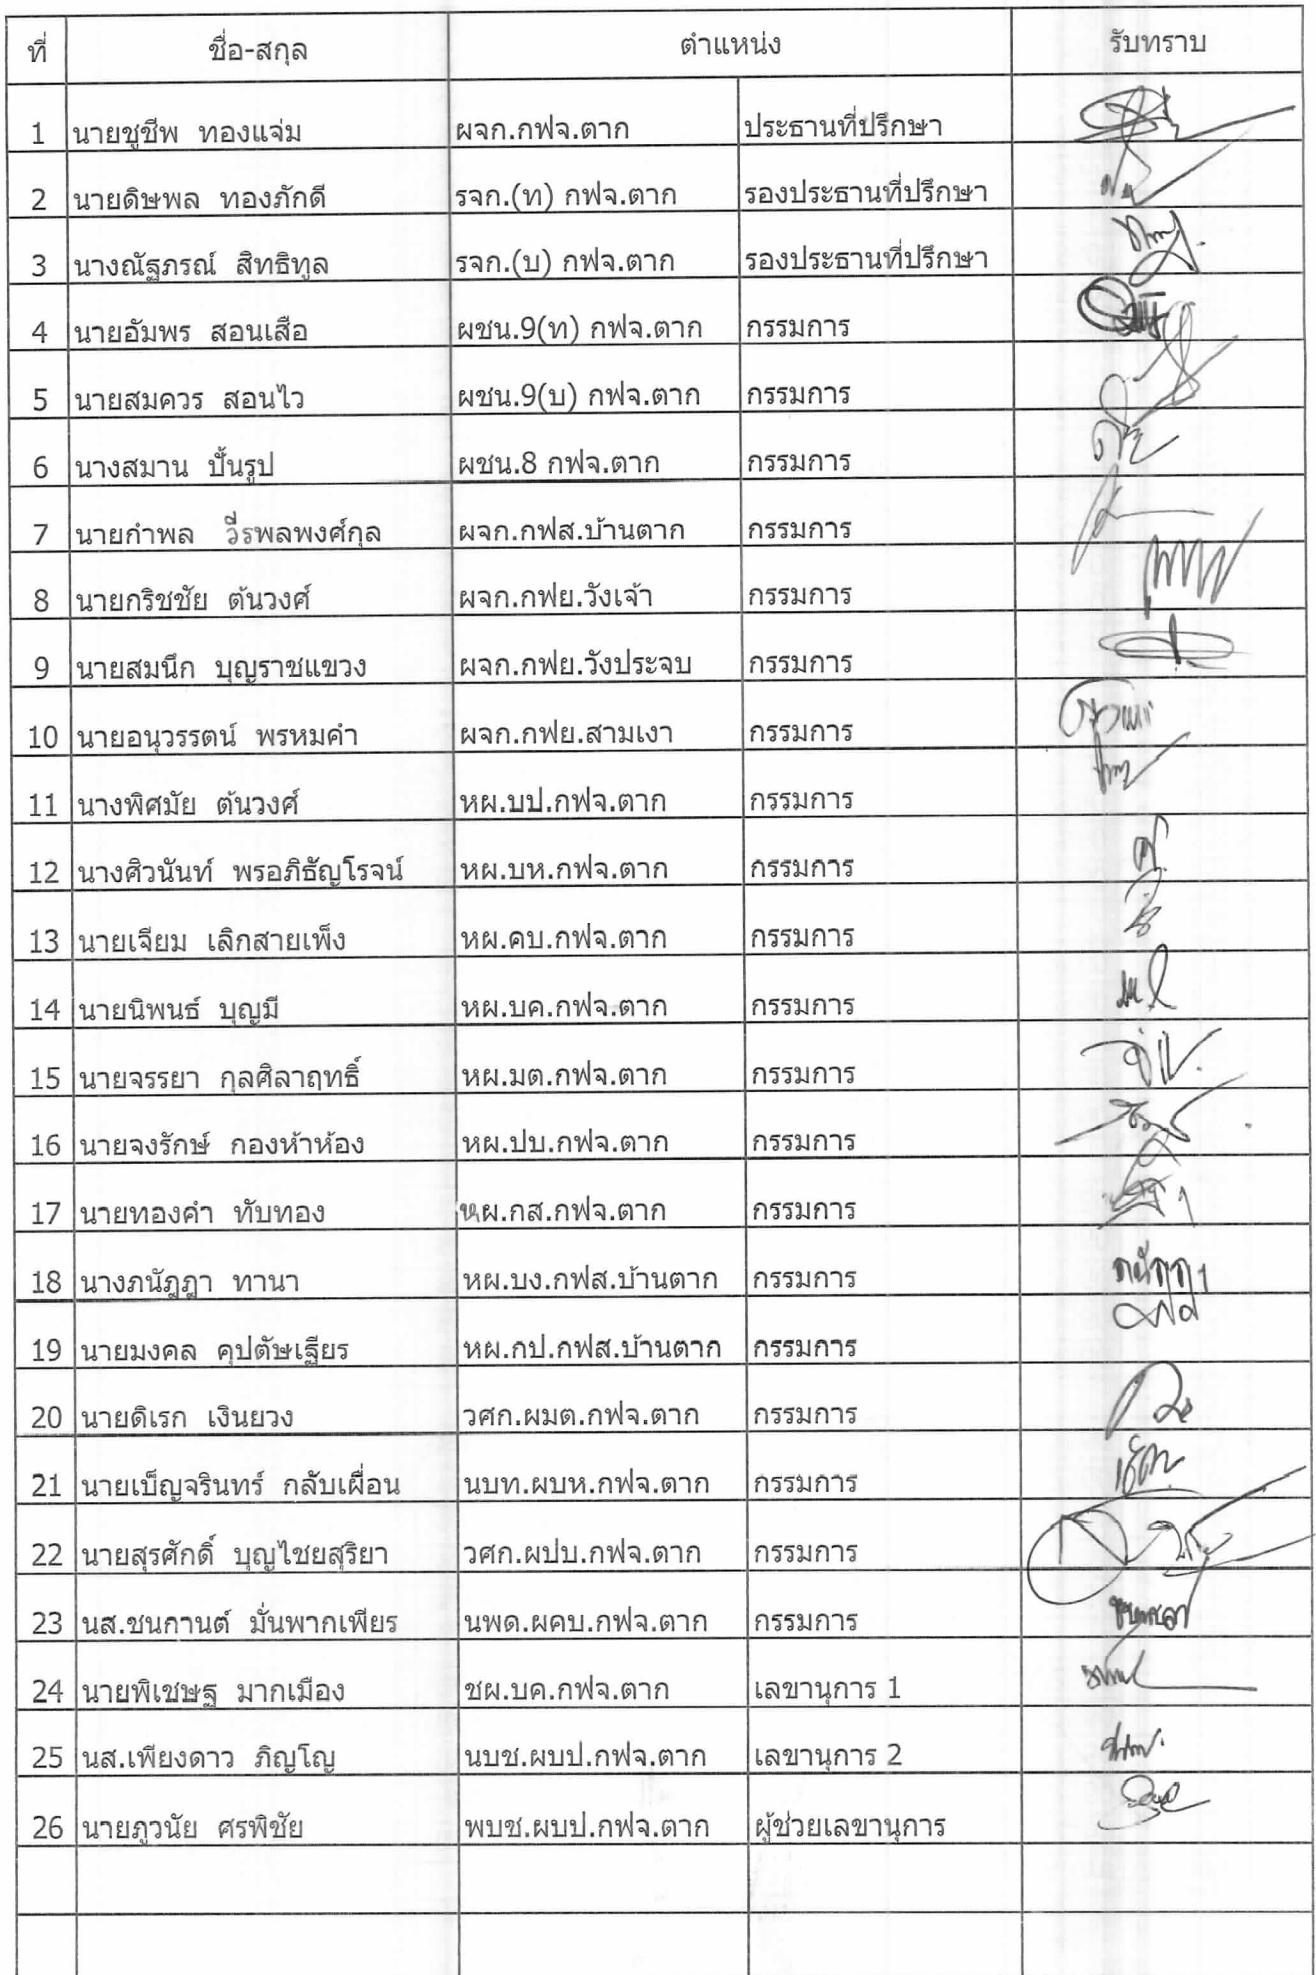 ที่ ชื่อ-สกุล ตำแหน่ง รับทราบ
1 นายชูชีพ ทองแจ่ม ผจก.กฟจ.ตาก ประธานที่ปรึกษา
2 นายดิษพล ทองภักดี รจก.(ท) กฟจ.ตาก รองประธานที่ปรึกษา
3 นางณัฐภรณ์ สิทธิทูล รจก.(บ) กฟจ.ตาก รองประธานที่ปรึกษา
4 นายอัมพร สอนเสือ ผชน.9(ท) กฟจ.ตาก กรรมการ
5 นายสมควร สอนไว ผชน.9(บ) กฟจ.ตาก กรรมการ
6 นางสมาน ปั้นรูป ผชน.8 กฟจ.ตาก กรรมการ
7 นายกำพล วีรพลพงศ์กุล ผจก.กฟส.บ้านตาก กรรมการ
8 นายกริชชัย ต้นวงศ์ ผจก.กฟย.วังเจ้า กรรมการ
9 นายสมนึก บุญราชแขวง ผจก.กฟย.วังประจบ กรรมการ
10 นายอนุวรรตน์ พรหมคำ ผจก.กฟย.สามเงา กรรมการ
11 นางพิศมัย ต้นวงศ์ หผ.บป.กฟจ.ตาก กรรมการ
12 นางศิวนันท์ พรอภิธัญโรจน์ หผ.บห.กฟจ.ตาก กรรมการ
13 นายเจียม เลิกสายเพ็ง หผ.คบ.กฟจ.ตาก กรรมการ
14 นายนิพนธ์ บุญมี หผ.บค.กฟจ.ตาก กรรมการ
15 นายจรรยา กุลศิลาฤทธิ์ หผ.มต.กฟจ.ตาก กรรมการ
16 นายจงรักษ์ กองห้าห้อง หผ.ปบ.กฟจ.ตาก กรรมการ
17 นายทองคำ ทับทอง หผ.กส.กฟจ.ตาก กรรมการ
18 นางภนัฎฎา ทานา หผ.บง.กฟส.บ้านตาก กรรมการ
19 นายมงคล คุปตัษเฐียร หผ.กป.กฟส.บ้านตาก กรรมการ
20 นายดิเรก เงินยวง วศก.ผมต.กฟจ.ตาก กรรมการ
21 นายเบ็ญจรินทร์ กลับเผื่อน นบท.ผบห.กฟจ.ตาก กรรมการ
22 นายสุรศักดิ์ บุญไชยสุริยา วศก.ผปบ.กฟจ.ตาก กรรมการ
23 นส.ชนกานต์ มั่นพากเพียร นพด.ผคบ.กฟจ.ตาก กรรมการ
24 นายพิเชษฐ มากเมือง ชผ.บค.กฟจ.ตาก เลขานุการ 1
25 นส.เพียงดาว ภิญโญ นบช.ผบป.กฟจ.ตาก เลขานุการ 2
26 นายภูวนัย ศรพิชัย พบช.ผบป.กฟจ.ตาก ผู้ช่วยเลขานุการ